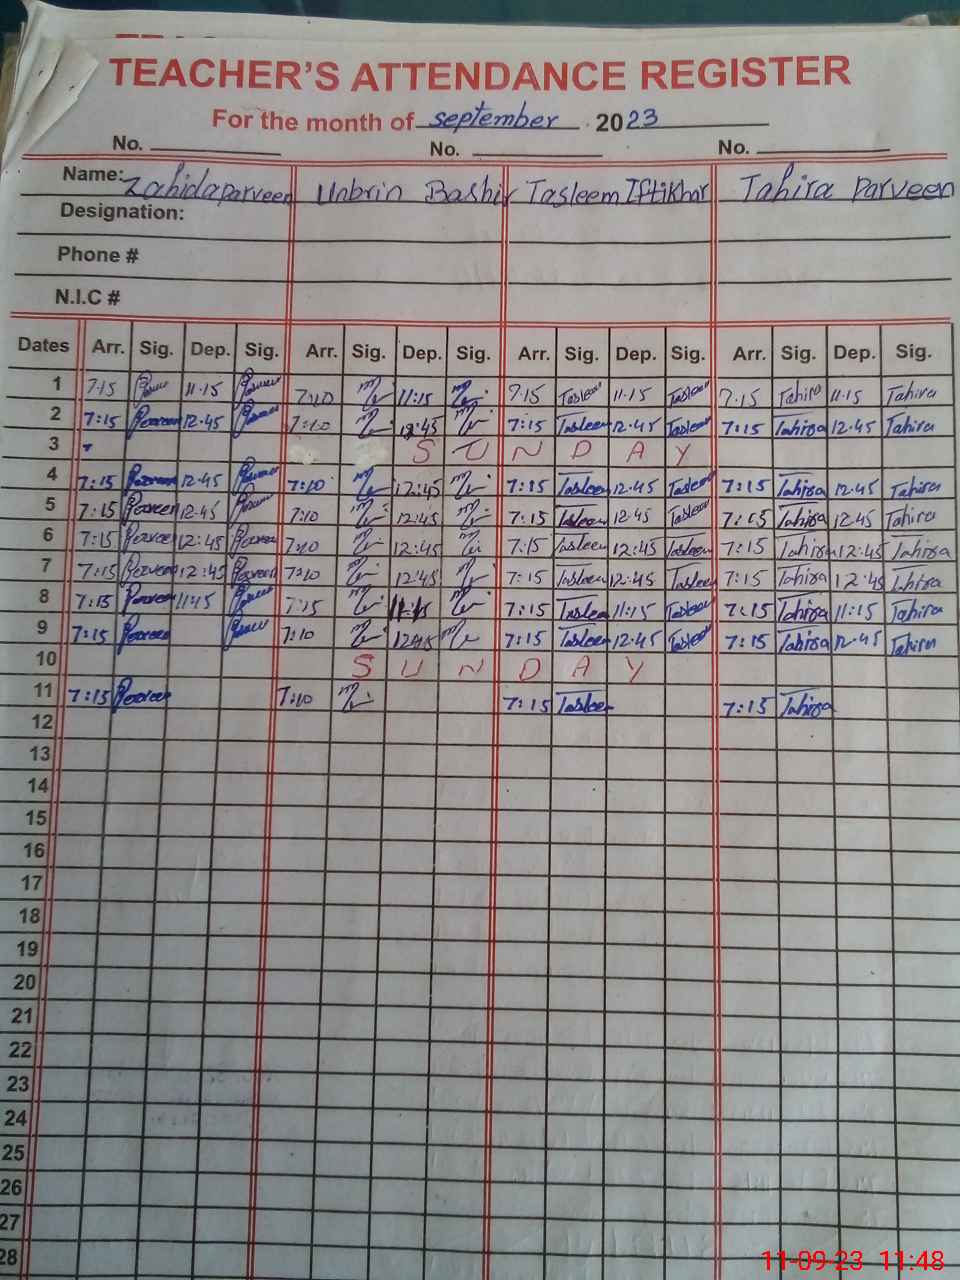 TEACHER'S ATTENDANCE REGISTER
For the month of september 2023
No. No. No.
Name: Zahida parveen Unbrin Bashir Tasleem Iftikhar Tahira parveen
Designation:
Phone #
N.I.C #
Dates Arr. Sig. Dep. Sig. Arr. Sig. Dep. Sig. Arr. Sig. Dep. Sig. Arr. Sig. Dep. Sig.
1 7.15 11.15 7:10 11:15 7.15 Tasleem 11.15 Tasleem 7.15 Tahira 11.15 Tahira
2 7:15 Parveen 12.45 7:10 12:45 7:15 Tasleem 12.45 Tasleem 7:15 Tahira 12.45 Tahira
3 SUNDAY
4 7:15 Parveen 12.45 7:10 12:45 7:15 Tasleem 12.45 Tasleem 7:15 Tahira 12.45 Tahira
5 7:15 Parveen 12.45 7:10 12:45 7:15 Tasleem 12.45 Tasleem 7:15 Tahira 12.45 Tahira
6 7:15 Parveen 12:45 Parveen 7:10 12:45 7:15 Tasleem 12:45 Tasleem 7:15 Tahira 12:45 Tahira
7 7:15 Parveen 12:45 Parveen 7:10 12:45 7:15 Tasleem 12:45 Tasleem 7:15 Tahira 12:45 Tahira
8 7:15 Parveen 11:15 7:15 11:15 7:15 Tasleem 11:15 Tasleem 7:15 Tahira 11:15 Tahira
9 7:15 Parveen 7:10 12:45 7:15 Tasleem 12:45 Tasleem 7:15 Tahira 12.45 Tahira
10 SUNDAY
11 7:15 Parveen 7:10 7:15 Tasleem 7:15 Tahira
12
13
14
15
16
17
18
19
20
21
22
23
24
25
26
27
28
11-09-23 11:48